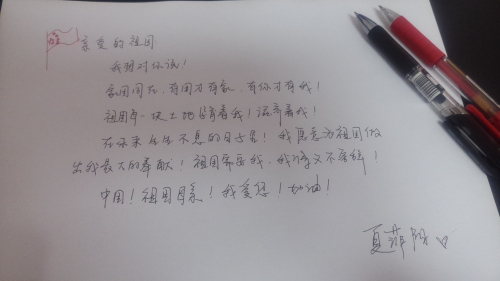 亲爱的祖国
我想对你说！
家国同在，有国才有家，有你才有我！
祖国每一块土地留有着我！滋养着我！
在未来生生不息的日子里！我愿意为祖国做
出我最大的奉献！祖国需要我，我将义不容辞！
中国！祖国母亲！我爱您！加油！
夏菲阳